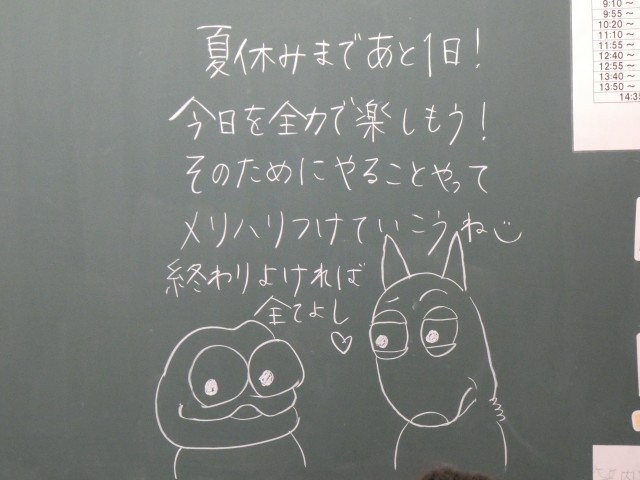 夏休みまであと1日!
今日を全力で楽しもう!
そのためにやることやって
メリハリつけていこうね
終わりよければ
全てよし♡
9:10~
9:55~
10:20~
11:10~
11:55~
12:40~
12:55~
13:40~
13:50~
14:35